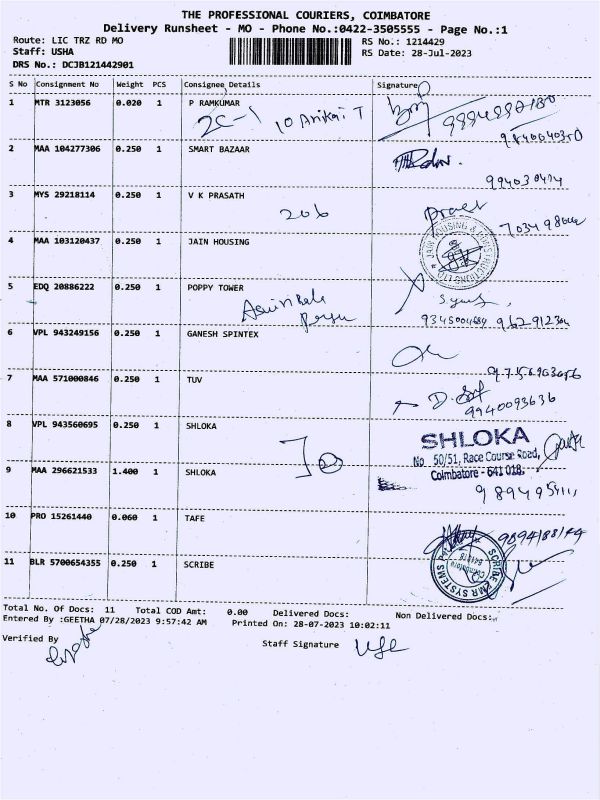 THE PROFESSIONAL COURIERS, COIMBATORE
Delivery Runsheet - MO - Phone No.:0422-3505555 - Page No.:1
Route: LIC TRZ RD MO RS No.: 1214429
Staff: USHA RS Date: 28-Jul-2023
DRS No.: DCJB121442901
S No Consignment No Weight PCS Consignee Details Signature
1 MTR 3123056 0.020 1 P RAMKUMAR
2C-1 10 Arikai T
2 MAA 104277306 0.250 1 SMART BAZAAR
3 MYS 29218114 0.250 1 V K PRASATH
206
4 MAA 103120437 0.250 1 JAIN HOUSING
JAIN HOUSING & CONSTRUCTIONS LTD
5 EDQ 20886222 0.250 1 POPPY TOWER
6 VPL 943249156 0.250 1 GANESH SPINTEX
7 MAA 571000846 0.250 1 TUV
9940093636
8 VPL 943560695 0.250 1 SHLOKA
SHLOKA
No 50/51, Race Course Road,
Coimbatore - 641 018.
9 MAA 296621533 1.400 1 SHLOKA
10 PRO 15261440 0.060 1 TAFE
9894188144
11 BLR 5700654355 0.250 1 SCRIBE
Total No. Of Docs: 11 Total COD Amt: 0.00 Delivered Docs: Non Delivered Docs:
Entered By :GEETHA 07/28/2023 9:57:42 AM Printed On: 28-07-2023 10:02:11
Verified By Staff Signature